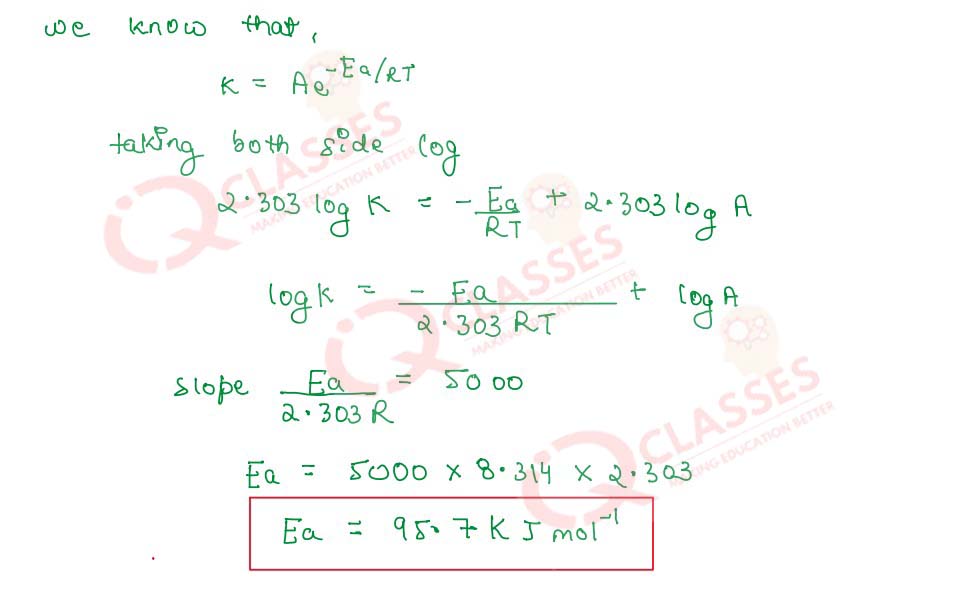 we know that,
K = Ae^-Ea/RT
taking both side log
2.303 log K = - Ea/RT + 2.303 log A
log K = - Ea/2.303 RT + log A
slope Ea/2.303 R = 5000
Ea = 5000 × 8.314 × 2.303
Ea = 95.7 K J mol^-1
IQ CLASSES
MAKING EDUCATION BETTER
IQ CLASSES
MAKING EDUCATION BETTER
IQ CLASSES
MAKING EDUCATION BETTER